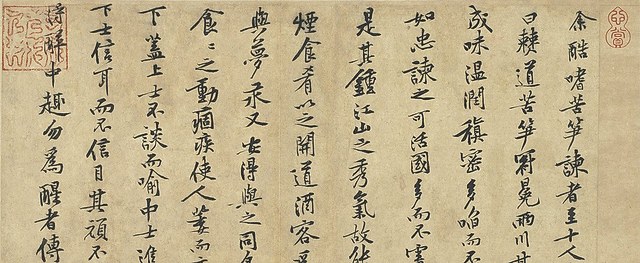 余酷嗜苦筍諫者至十人
曰僰道苦筍冠冕兩川
成味溫潤稹密多啗而不
如忠諫之可活國多而不害
是其鍾江山之秀氣故能
煙食肴以之開道酒客
與夢汞又安得與之同
食〻之動痼疾使人萎而
下蓋上士不談而喻中士進
下士信耳而不信目其頑不
得醉中趣勿為醒者傳